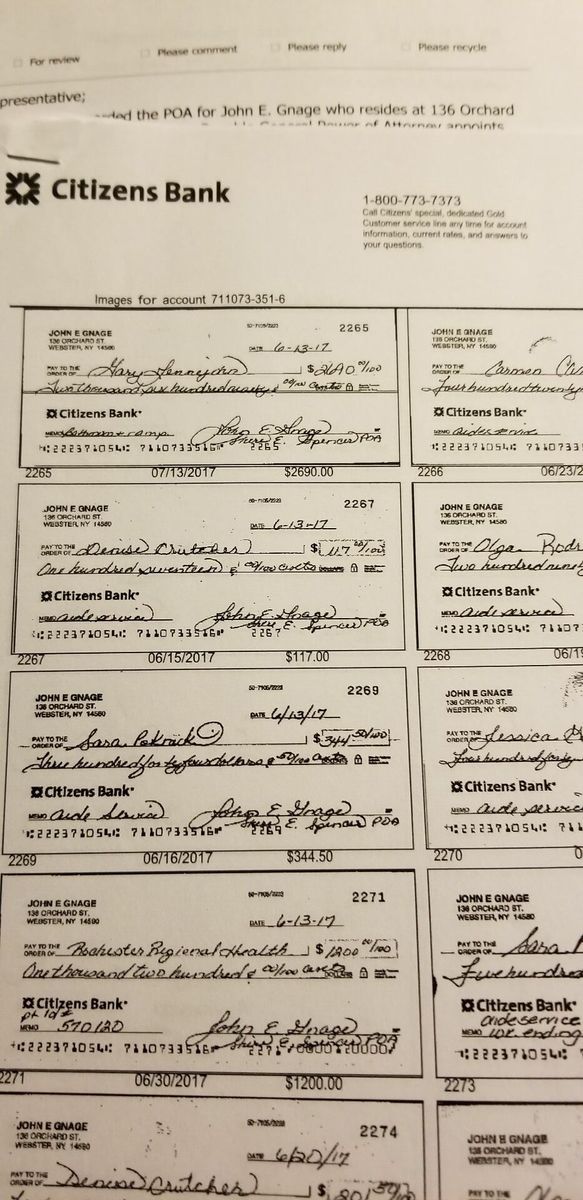 For review
Please comment
Please reply
Please recycle
presentative;
the POA for John E. Gnage who resides at 136 Orchard
General Power of Attorney appoints
Citizens Bank
1-800-773-7373
Call Citizens' special, dedicated Gold
Customer service line any time for account
information, current rates, and answers to
your questions.
Images for account 711073-351-6
JOHN E GNAGE
136 ORCHARD ST.
WEBSTER, NY 14580
2265
DATE 6-13-17
PAY TO THE
ORDER OF Gary
$2690 00/100
Two thousand six hundred ninety & 00/100
Citizens Bank
MEMO Bathroom + ramp
John E Gnage
Sheri E. Spencer POA
2265 07/13/2017 $2690.00
JOHN E GNAGE
136 ORCHARD ST.
WEBSTER, NY 14580
PAY TO THE
ORDER OF Carmen
Four hundred twenty
Citizens Bank
MEMO aide
2266 06/23/2
JOHN E GNAGE
136 ORCHARD ST.
WEBSTER, NY 14580
2267
DATE 6-13-17
PAY TO THE
ORDER OF Denise Crutcher
$ 117 00/100
One hundred seventeen & 00/100
Citizens Bank
MEMO aide service
John E Gnage
Sheri E. Spencer POA
2267 06/15/2017 $117.00
JOHN E GNAGE
136 ORCHARD ST.
WEBSTER, NY 14580
PAY TO THE
ORDER OF Olga Rodr
Two hundred nine
Citizens Bank
MEMO aide service
2268 06/19
JOHN E GNAGE
136 ORCHARD ST.
WEBSTER, NY 14580
2269
DATE 6/13/17
PAY TO THE
ORDER OF Sara
$344 50/100
Three hundred forty four dollars & 50/100
Citizens Bank
MEMO aide service
John E Gnage
Sheri E. Spencer POA
2269 06/16/2017 $344.50
JOHN E GNAGE
136 ORCHARD ST.
WEBSTER, NY 14580
PAY TO THE
ORDER OF Jessica
Four hundred forty
Citizens Bank
MEMO aide service
2270 0
JOHN E GNAGE
136 ORCHARD ST.
WEBSTER, NY 14580
2271
DATE 6-13-17
PAY TO THE
ORDER OF Rochester Regional Health
$1200 00/100
One thousand two hundred & 00/100
Citizens Bank
pt id #
MEMO 570120
John E Gnage
Sheri E. Spencer POA
2271 06/30/2017 $1200.00
JOHN E GNAGE
136 ORCHARD ST.
WEBSTER, NY 14580
PAY TO THE
ORDER OF Sara
Five hundred
Citizens Bank
aide service
MEMO wk ending
2273
JOHN E GNAGE
136 ORCHARD ST.
WEBSTER, NY 14580
2274
DATE 6/20/17
PAY TO THE
ORDER OF Denise Crutcher
JOHN E GNAGE
136 ORCHARD ST.
WEBSTER, NY 14580
PAY TO THE